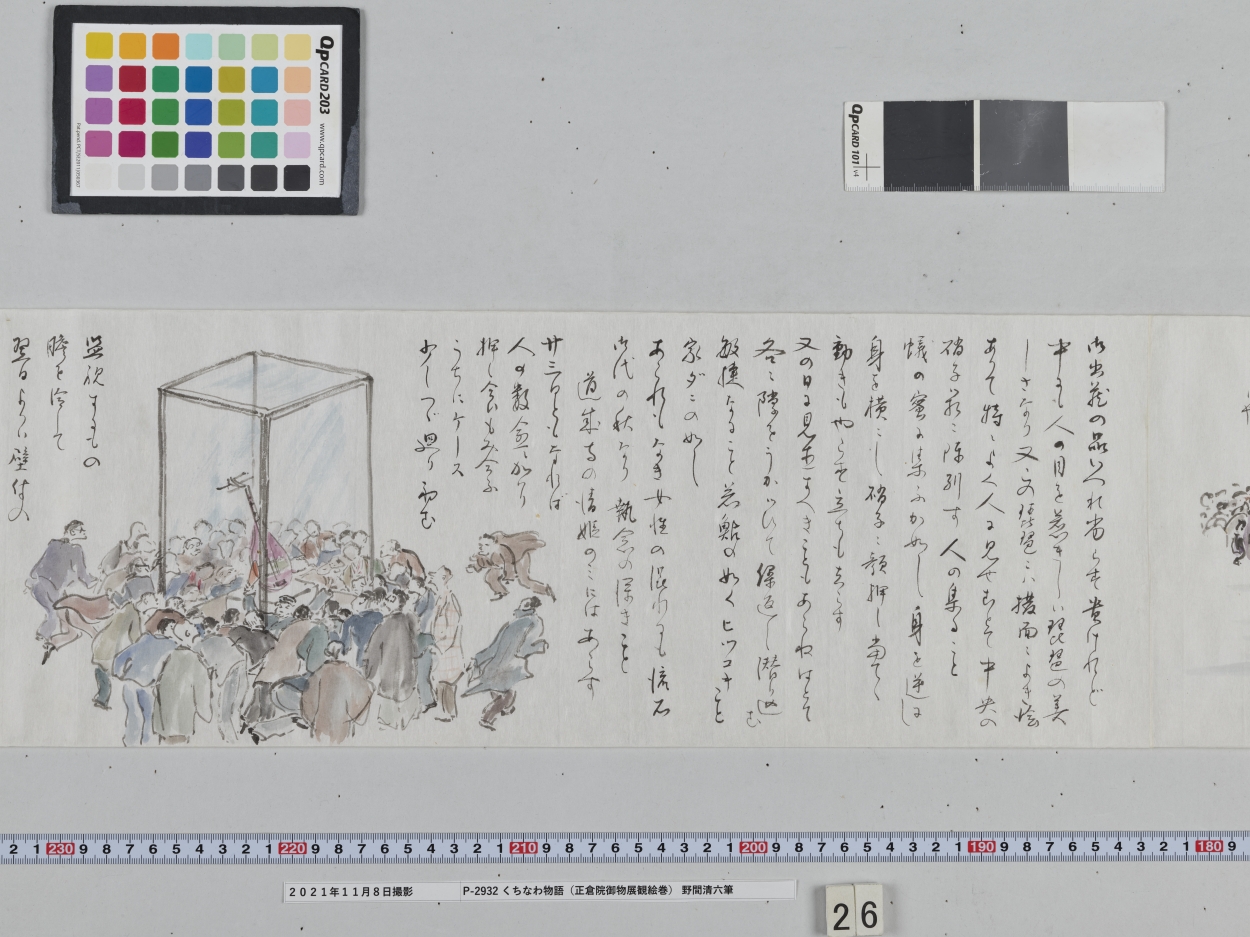 QPCARD 203
www.qpcard.com
QPCARD 101 v4
御出蔵の品いづれ劣らず貴けれど
中にも人の目を惹きしハ琵琶の美
しさなり 又この琵琶ハ撥面によき絵
ありて特によく人に見せむとて中央の
硝子箱に陳列す 人の集ること
蟻の蜜に集ふが如し 身を逆は
身を横にし硝子に額押し当てゝ
動きもやらず立ちも去らす
又の日に見せずべきにもあらねばとて
各々隙をうかゞひて繰返し潜り込む
敏捷なること若鮎の如くヒツコキこと
家ダニの如し
あられもなき女性の混れるも流石
御代の秋なり 執念の深きこと
道成寺の清姫のみにはあらす
廿三日ともなれば
人の数愈々加り
押し合いもみ合ふ
うちにケース
少しづゝ廻り初む
監視するもの
膽を冷して
翌日よりハ壁仕つ
2 1 230 9 8 7 6 5 4 3 2 1 220 9 8 7 6 5 4 3 2 1 210 9 8 7 6 5 4 3 2 1 200 9 8 7 6 5 4 3 2 1 190 9 8 7 6 5 4 3 2 1 180 9
2021年11月8日撮影 P-2932 くちなわ物語(正倉院御物展観絵巻) 野間清六筆
26